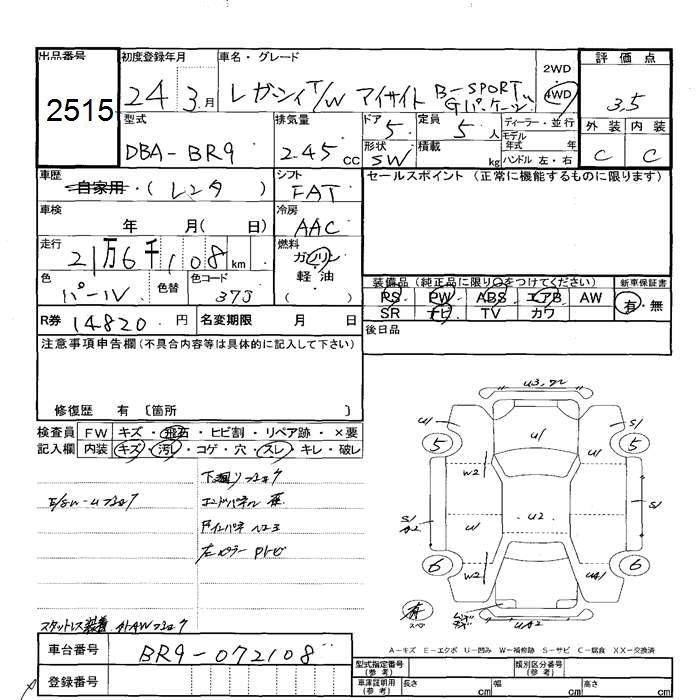 出品番号 初度登録年月 車名・グレード
2515 24 3月 レガシィT/W アイサイト B-SPORT Gパッケージ
2WD
4WD
評価点
3.5
外装 内装
C C
型式 排気量 ドア 定員 ディーラー・並行
DBA-BR9 2.45 cc 5 5人 モデル年式 年
形状 積載 kg ハンドル 左・右
SW
車歴 シフト セールスポイント (正常に機能するものに限ります)
自家用・(レンタ) FAT
車検 冷房
年 月( 日) AAC
走行 燃料
21万6千108km ガソリン
軽油
( )
色 色替 色コード
パール 37J
装備品 (純正品に限り○をつけてください) 新車保証書
PS PW ABS エアB AW 有・無
SR ナビ TV カワ
R券 14820円 名変期限 月 日
後日品
注意事項申告欄 (不具合内容等は具体的に記入して下さい)
修復歴 有 〔箇所 〕
検査員 FW キズ・飛石・ヒビ割・リペア跡・×要
記入欄 内装 キズ・汚れ・コゲ・穴・スレ・キレ・破レ
U3
U1 U1 S1
5 5
W2
S1 U1 U2 S1
A2
6 6
W2 U41
有
U42
車台番号 BR9-072108
登録番号
A-キズ E-エクボ U-凹み W-補修跡 S-サビ C-腐食 XX-交換済
型式指定番号 (参考) 類別区分番号 (参考)
車庫証明用 (参考) 長さ cm 幅 cm 高さ cm